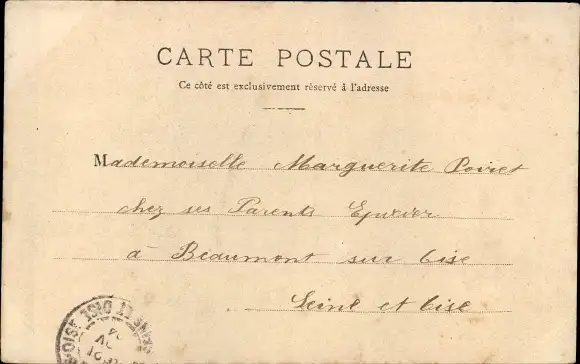 CARTE POSTALE
Ce côté est exclusivement réservé à l'adresse
Mademoiselle Marguerite Poiret
chez ses Parents
à Beaumont sur Oise
Seine et Oise
SEINE ET OISE